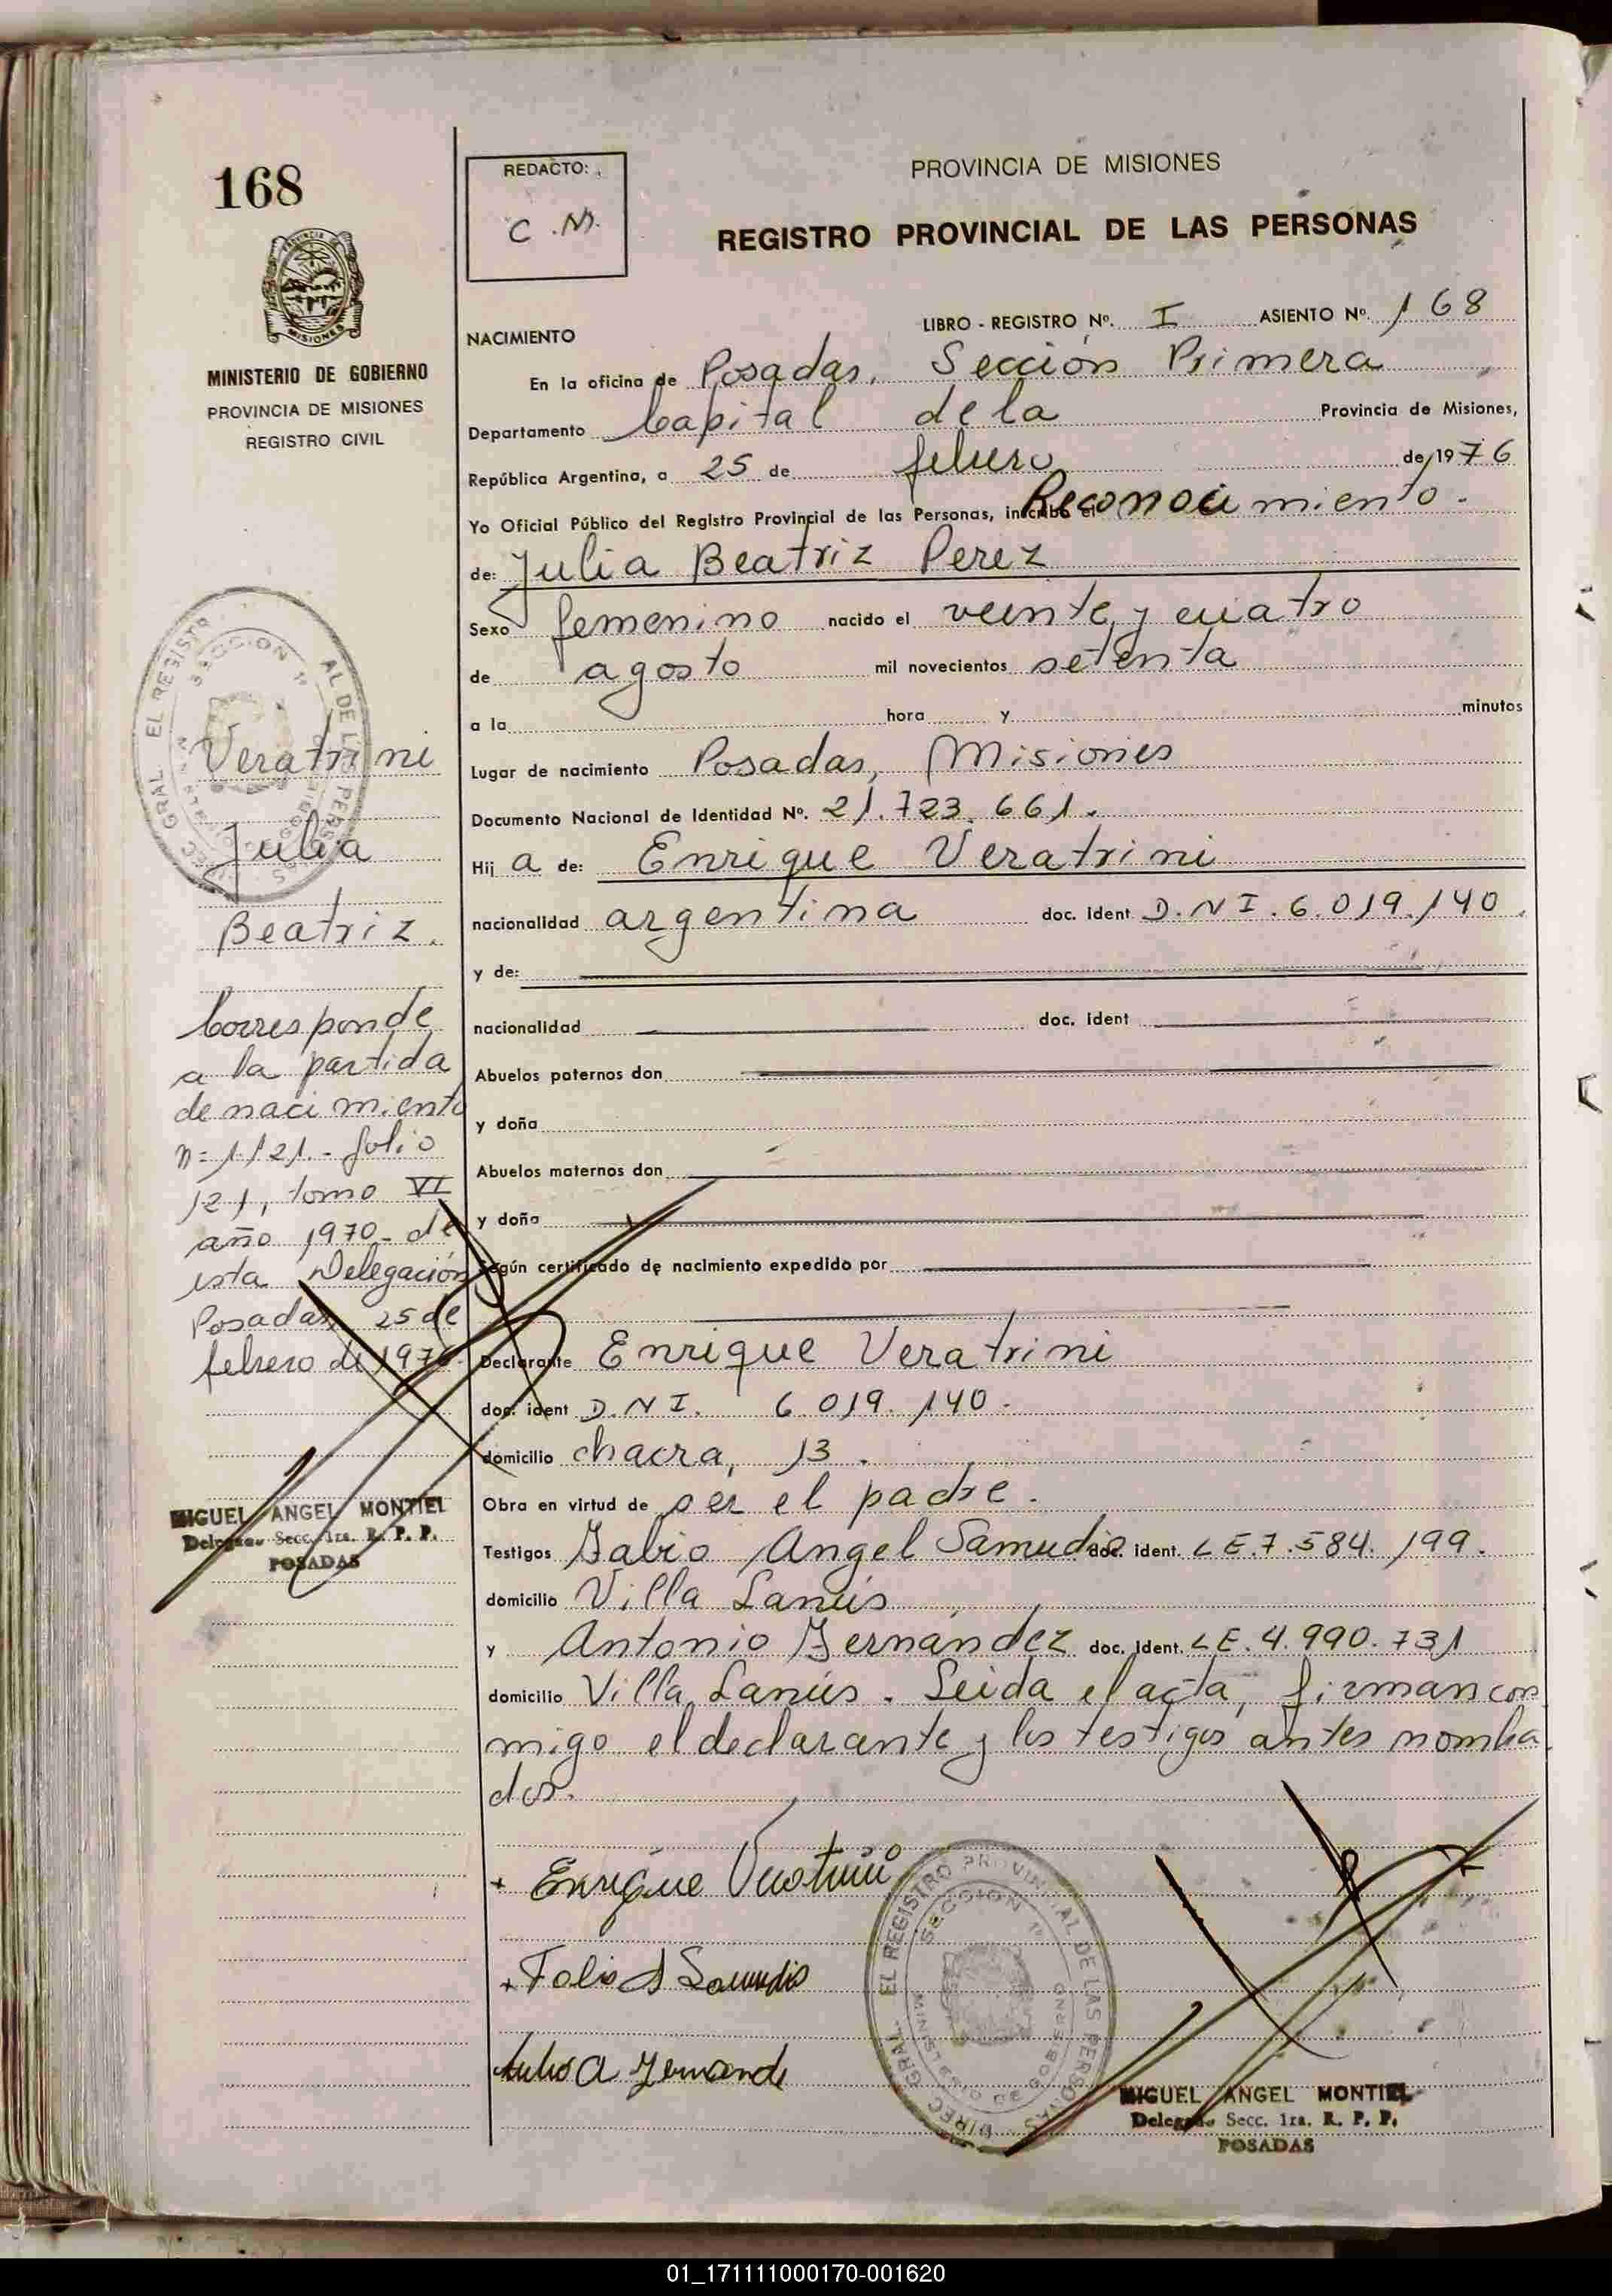 168
MINISTERIO DE GOBIERNO
PROVINCIA DE MISIONES
REGISTRO CIVIL
Veratrini
Julia
Beatriz.
Corresponde
a la partida
de nacimiento
n= 1121.- folio
121, tomo VI
año 1970- de
esta Delegación
Posadas, 25 de
febrero de 1976.
MIGUEL ANGEL MONTIEL
Delegado Secc. 1ra. R. P. P.
POSADAS
REDACTO:
C. M.
PROVINCIA DE MISIONES
REGISTRO PROVINCIAL DE LAS PERSONAS
LIBRO - REGISTRO Nº. I ASIENTO Nº. 168
NACIMIENTO
En la oficina de Posadas, Sección Primera
Departamento Capital de la Provincia de Misiones,
República Argentina, a 25 de febrero de 1976
Yo Oficial Público del Registro Provincial de las Personas, inscribo el Reconocimiento.
de: Julia Beatriz Perez
Sexo femenino nacido el veinte y cuatro
de agosto mil novecientos setenta
a la hora y minutos
Lugar de nacimiento Posadas, Misiones
Documento Nacional de Identidad Nº. 21.723.661.
Hij a de: Enrique Veratrini
nacionalidad argentina doc. Ident D.N I. 6.019.140.
y de:
nacionalidad doc. ident
Abuelos paternos don
y doña
Abuelos maternos don
y doña
Según certificado de nacimiento expedido por
Declarante Enrique Veratrini
doc. ident D.N I. 6.019.140.
domicilio chacra, 13.
Obra en virtud de ser el padre.
Testigos Fabio Angel Samudio doc. ident. LE.7.584.199.
domicilio Villa Lanús
y Antonio Fernández doc. ident. LE.4.990.731
domicilio Villa Lanús. Leida el acta, firman con
migo el declarante y los testigos antes nomba
dos.
+ Enrique Veratrini
+ Fabio A Samudio
DIREC. GRAL. EL REGISTRO PROVINCIAL DE LAS PERSONAS
SECCION 1ª
MINISTERIO DE GOBIERNO
MIGUEL ANGEL MONTIEL
Delegado Secc. 1ra. R. P. P.
POSADAS
01_171111000170-001620